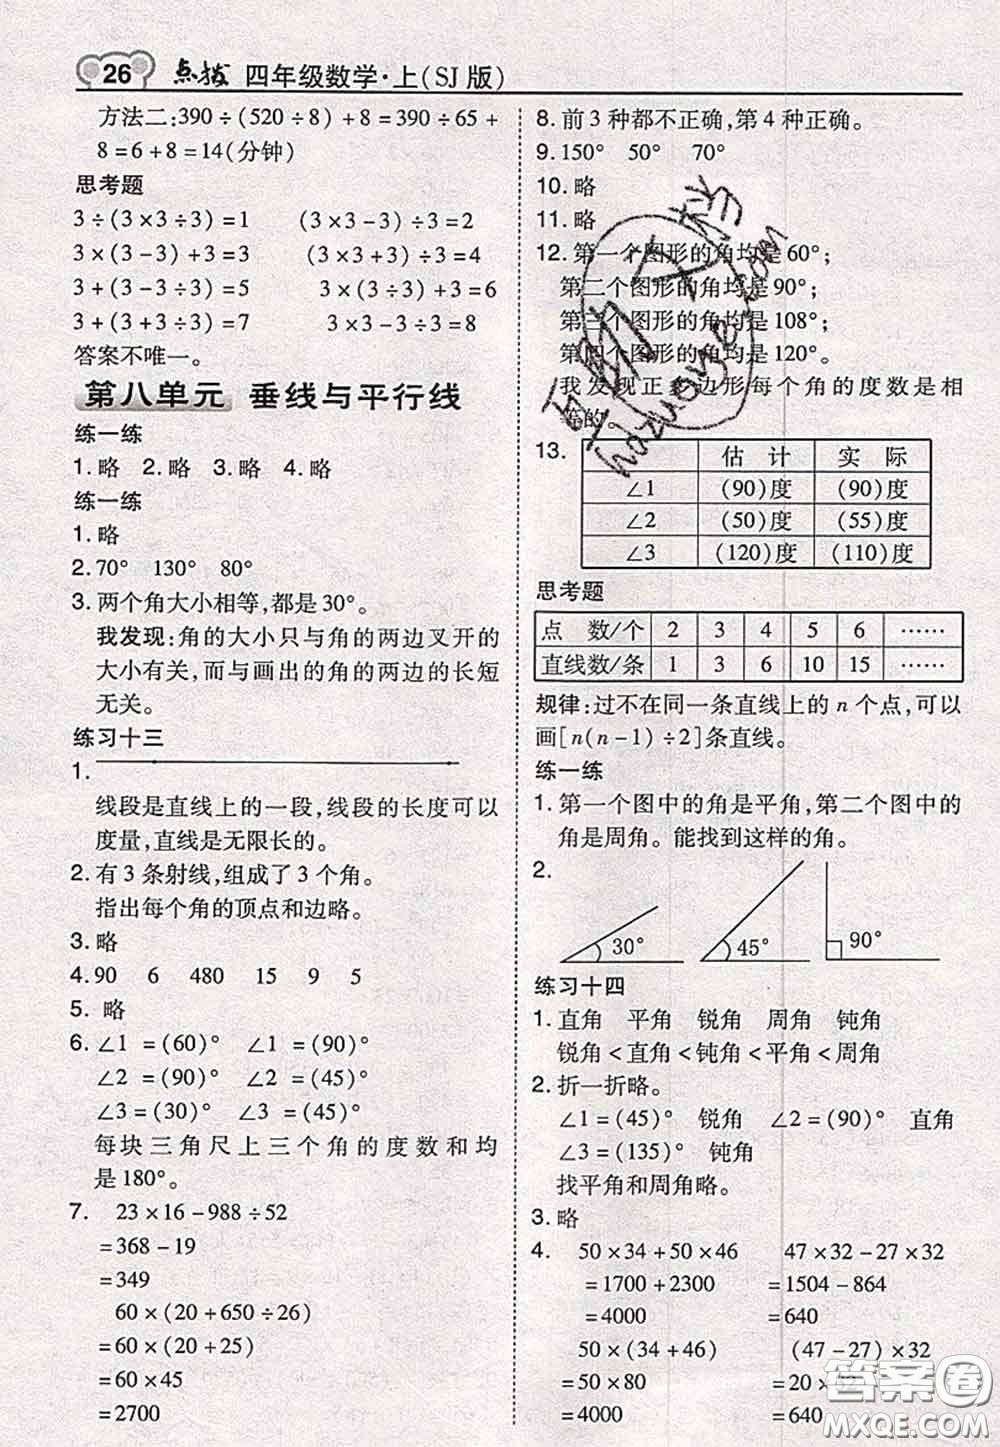 26 点拨 四年级数学·上(SJ版)
方法二:390÷(520÷8)+8=390÷65+
8=6+8=14(分钟)
思考题
3÷(3×3÷3)=1 (3×3-3)÷3=2
3×(3-3)+3=3 (3×3+3)÷3=4
3+(3-3÷3)=5 3×(3÷3+3=6
3+(3+3÷3)=7 3×3-3÷3=8
答案不唯一。
第八单元 垂线与平行线
练一练
1.略 2.略 3.略 4.略
练一练
1.略
2.70° 130° 80°
3.两个角大小相等,都是30°。
我发现:角的大小只与角的两边叉开的
大小有关,而与画出的角的两边的长短
无关。
练习十三
1.
线段是直线上的一段,线段的长度可以
度量,直线是无限长的。
2.有3条射线,组成了3个角。
指出每个角的顶点和边略。
3.略
4.90 6 480 15 9 5
5.略
6.∠1=(60)° ∠1=(90)°
∠2=(90)° ∠2=(45)°
∠3=(30)° ∠3=(45)°
每块三角尺上三个角的度数和均
是180°。
7. 23×16-988÷52
=368-19
=349
60×(20+650÷26)
=60×(20+25)
=60×45
=2700
8.前3种都不正确,第4种正确。
9.150° 50° 70°
10.略
11.略
12.第一个图形的角均是60°;
第二个图形的角均是90°;
第三个图形的角均是108°;
第四个图形的角均是120°。
我发现正多边形每个角的度数是相
等的。
13. 估计 实际
∠1 (90)度 (90)度
∠2 (50)度 (55)度
∠3 (120)度 (110)度
思考题
点数/个 2 3 4 5 6 ……
直线数/条 1 3 6 10 15 ……
规律:过不在同一条直线上的n个点,可以
画[n(n-1)÷2]条直线。
练一练
1.第一个图中的角是平角,第二个图中的
角是周角。能找到这样的角。
2.
30° 45° 90°
练习十四
1.直角 平角 锐角 周角 钝角
锐角<直角<钝角<平角<周角
2.折一折略。
∠1=(45)° 锐角 ∠2=(90)° 直角
∠3=(135)° 钝角
找平角和周角略。
3.略
4. 50×34+50×46 47×32-27×32
=1700+2300 =1504-864
=4000 =640
50×(34+46) (47-27)×32
=50×80 =20×32
=4000 =640
答案圈
MXQE.COM